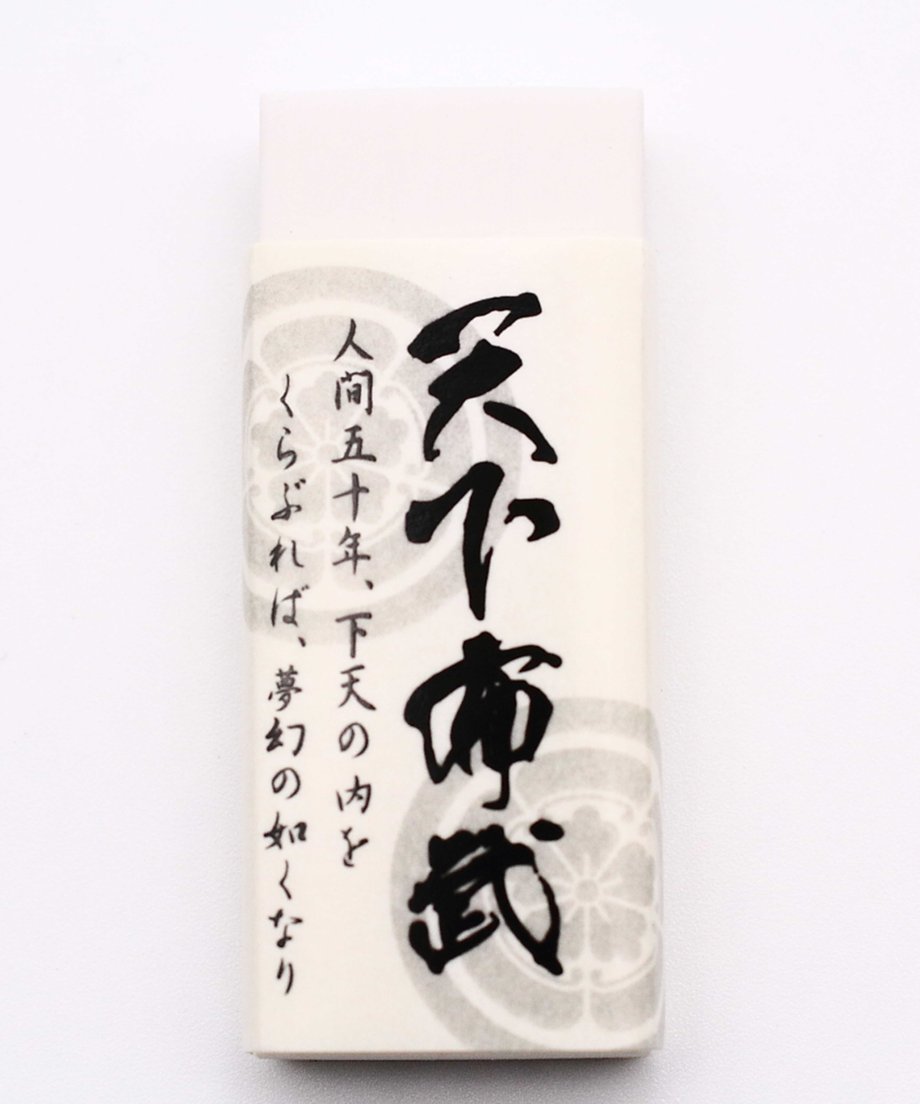 天下布武
人間五十年、下天の内を
くらぶれば、夢幻の如くなり